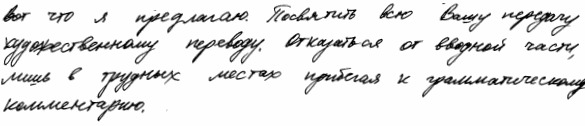 вот что я предлагаю. Посвятить всю Вашу передачу
художественному переводу. Отказаться от вводной части,
лишь в трудных местах прибегая к грамматическому
комментарию.